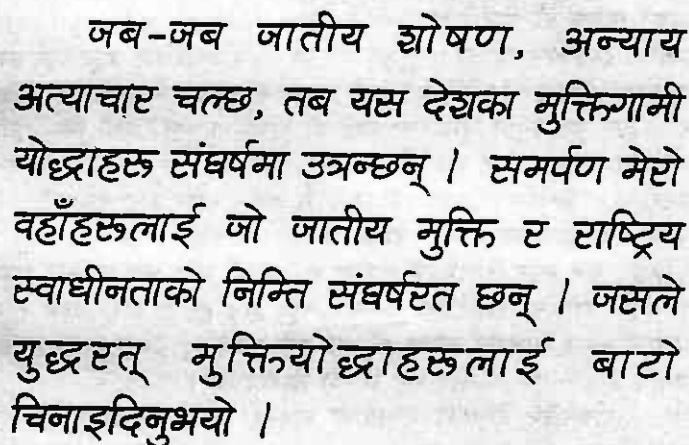 जब-जब जातीय शोषण, अन्याय
अत्याचार चल्छ, तब यस देशका मुक्तिगामी
योद्धाहरू संघर्षमा उत्रन्छन् । समर्पण मेरो
वहाँहरूलाई जो जातीय मुक्ति र राष्ट्रिय
स्वाधीनताको निम्ति संघर्षरत छन् । जसले
युद्धरत् मुक्तियोद्धाहरूलाई बाटो
चिनाइदिनुभयो ।